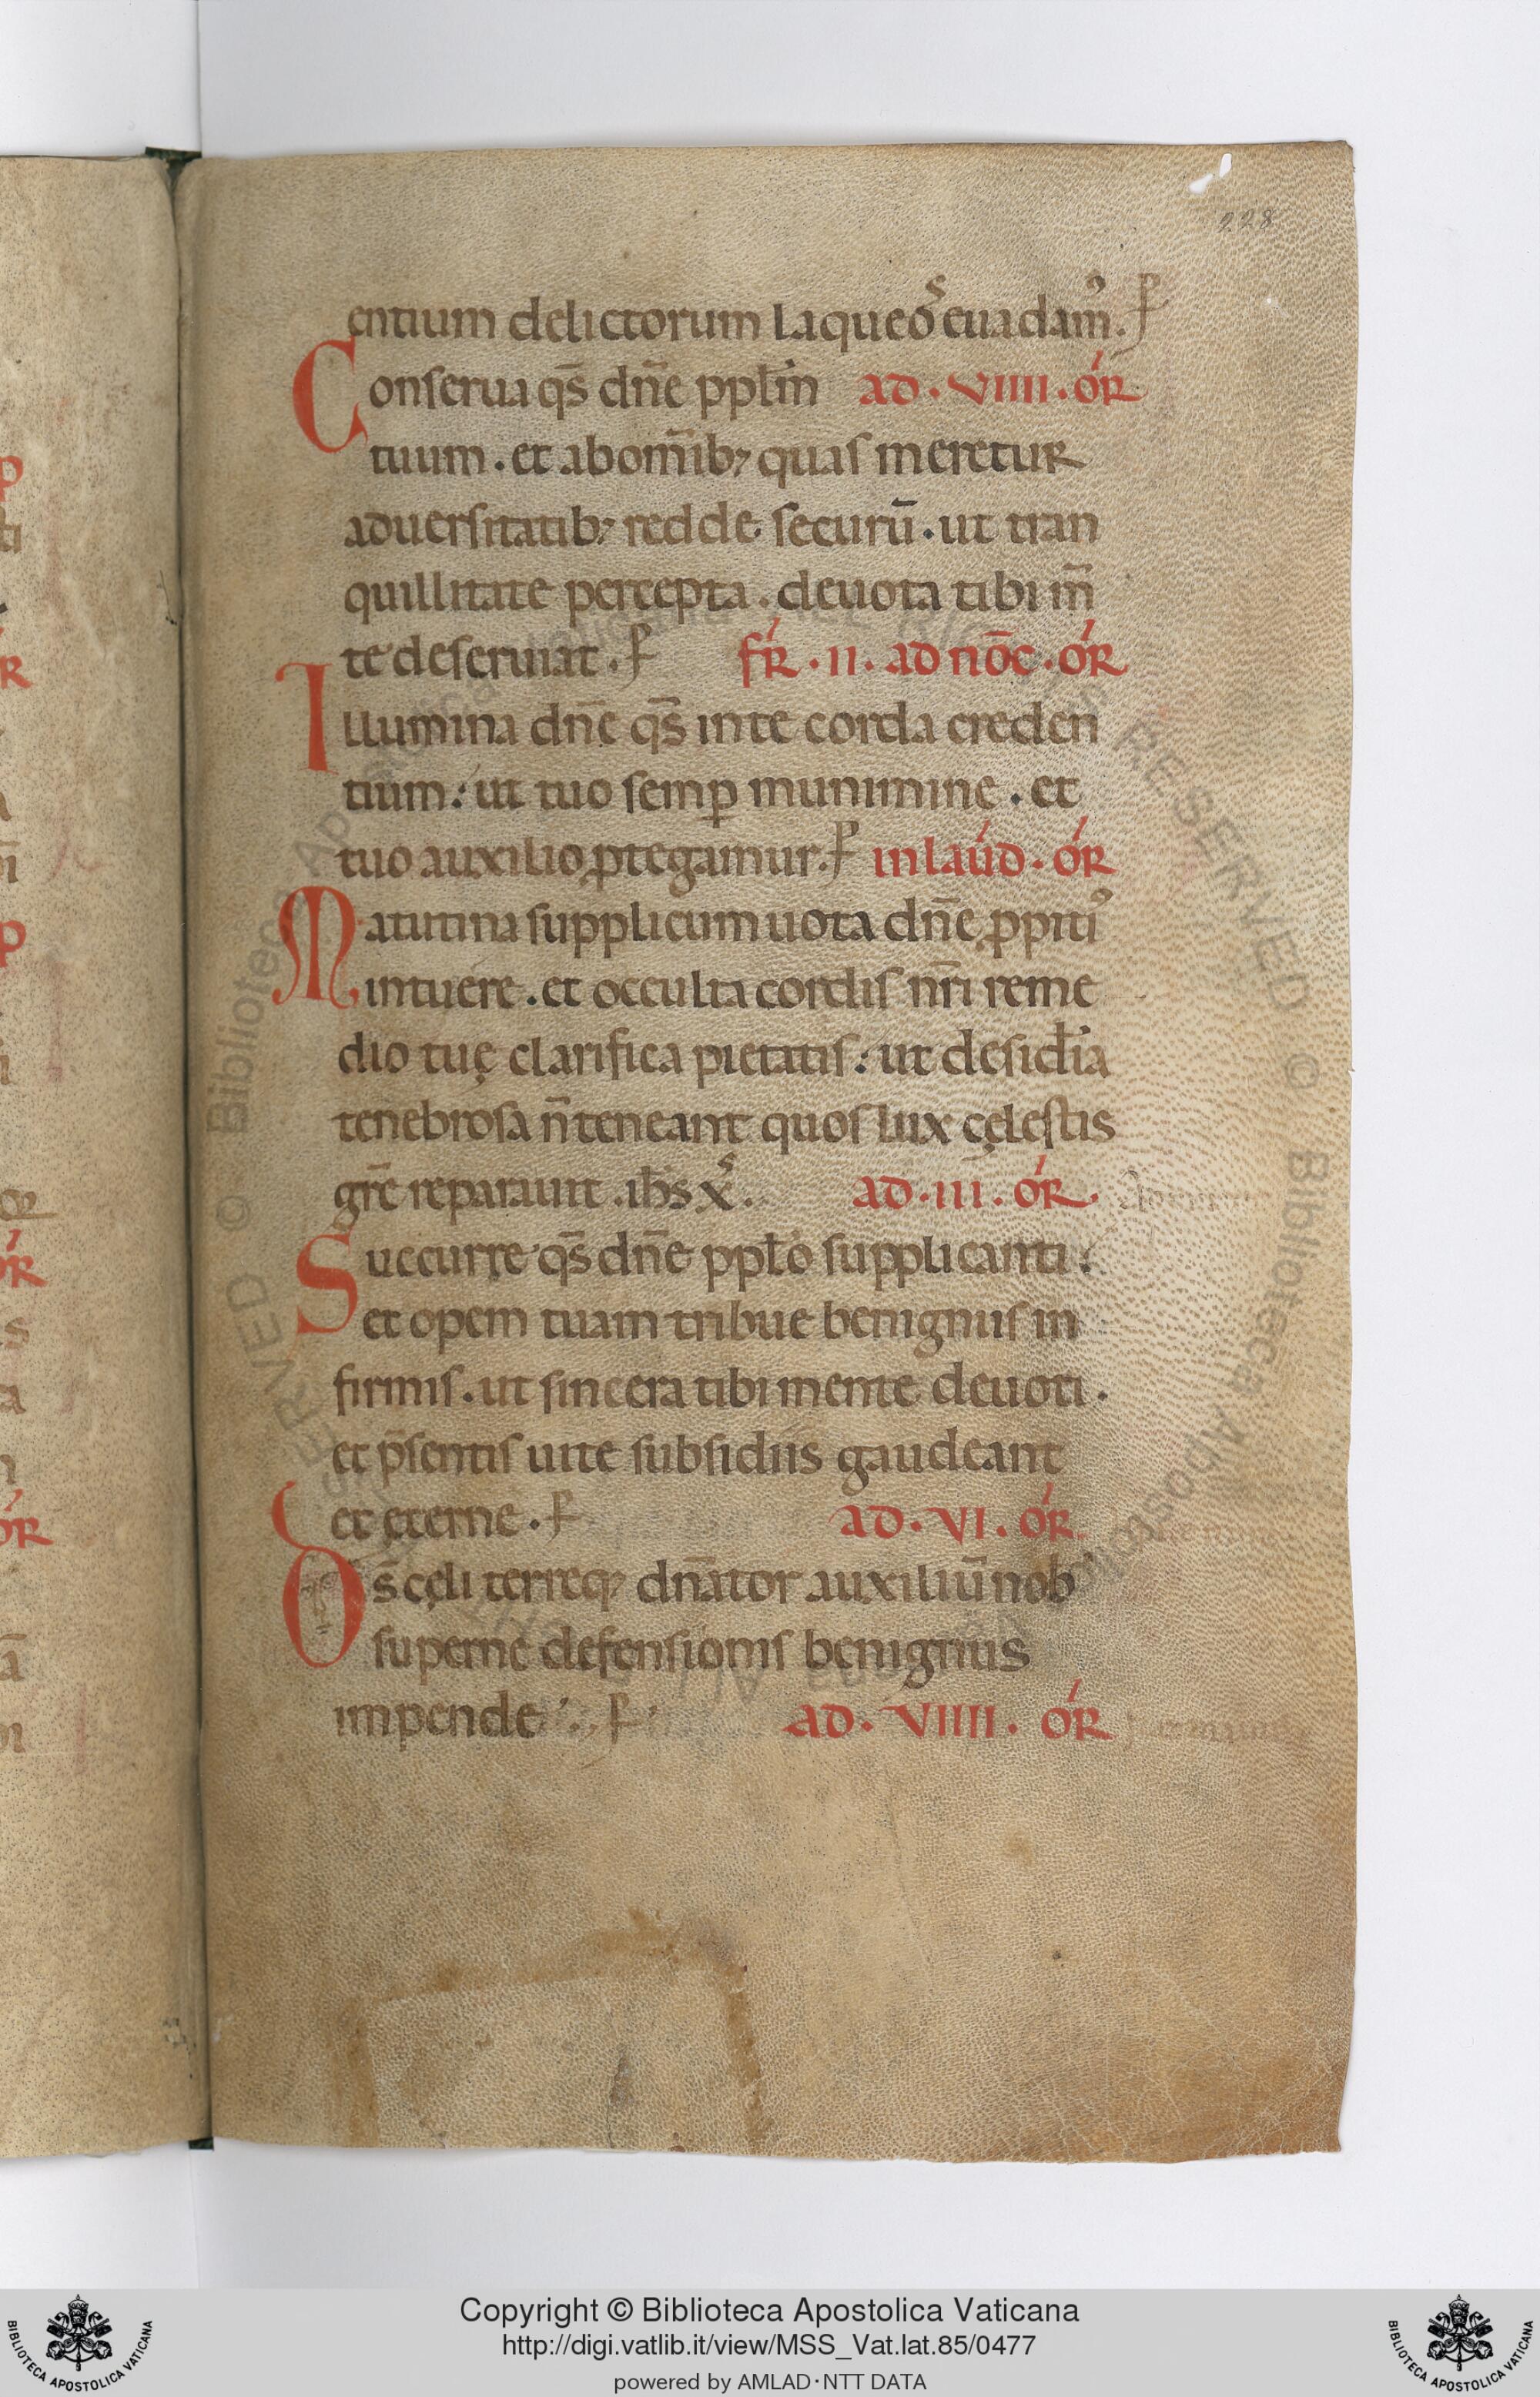 228
entium delictorum laqueoˢ euadam᷒. ꝑ
Conserua qs̄ dn̄e ppłm ad. VIIII. or̄
tuum. et ab om̄ib; quas meretur
aduersitatib; redde securū. ut tran
quillitate percepta. deuota tibi m̄
te deseruiat. ꝑ fr̄. II. ad nōc. or̄
Illumina dn̄e qs̄ in te corda creden
tium: ut tuo semꝑ munimine. et
tuo auxilio ꝓtegamur. ꝑ in laud. or̄
Matutina supplicum uota dn̄e ꝓpiti᷒
intuere. et occulta cordis nr̄i reme
dio tuę clarifica pietatis: ut desid̄ia
tenebrosa n̄ teneant quos lux cęlestis
gr̄e reparauit. ih̄s x̄ˢ. ad. III. or̄.
Succurre qs̄ dn̄e ppło supplicanti:
et opem tuam tribue benignus in
firmis. ut sincera tibi mente deuoti.
et p̄sentis uite subsidiis gaudeant
et ęterne. ꝑ ad. VI. or̄
Ds̄ cęli terreq; dn̄ator auxiliū nob᷒
superne defensionis benignus
impende. ꝑ ad. VIIII. or̄
Copyright © Biblioteca Apostolica Vaticana
http://digi.vatlib.it/view/MSS_Vat.lat.85/0477
powered by AMLAD·NTT DATA